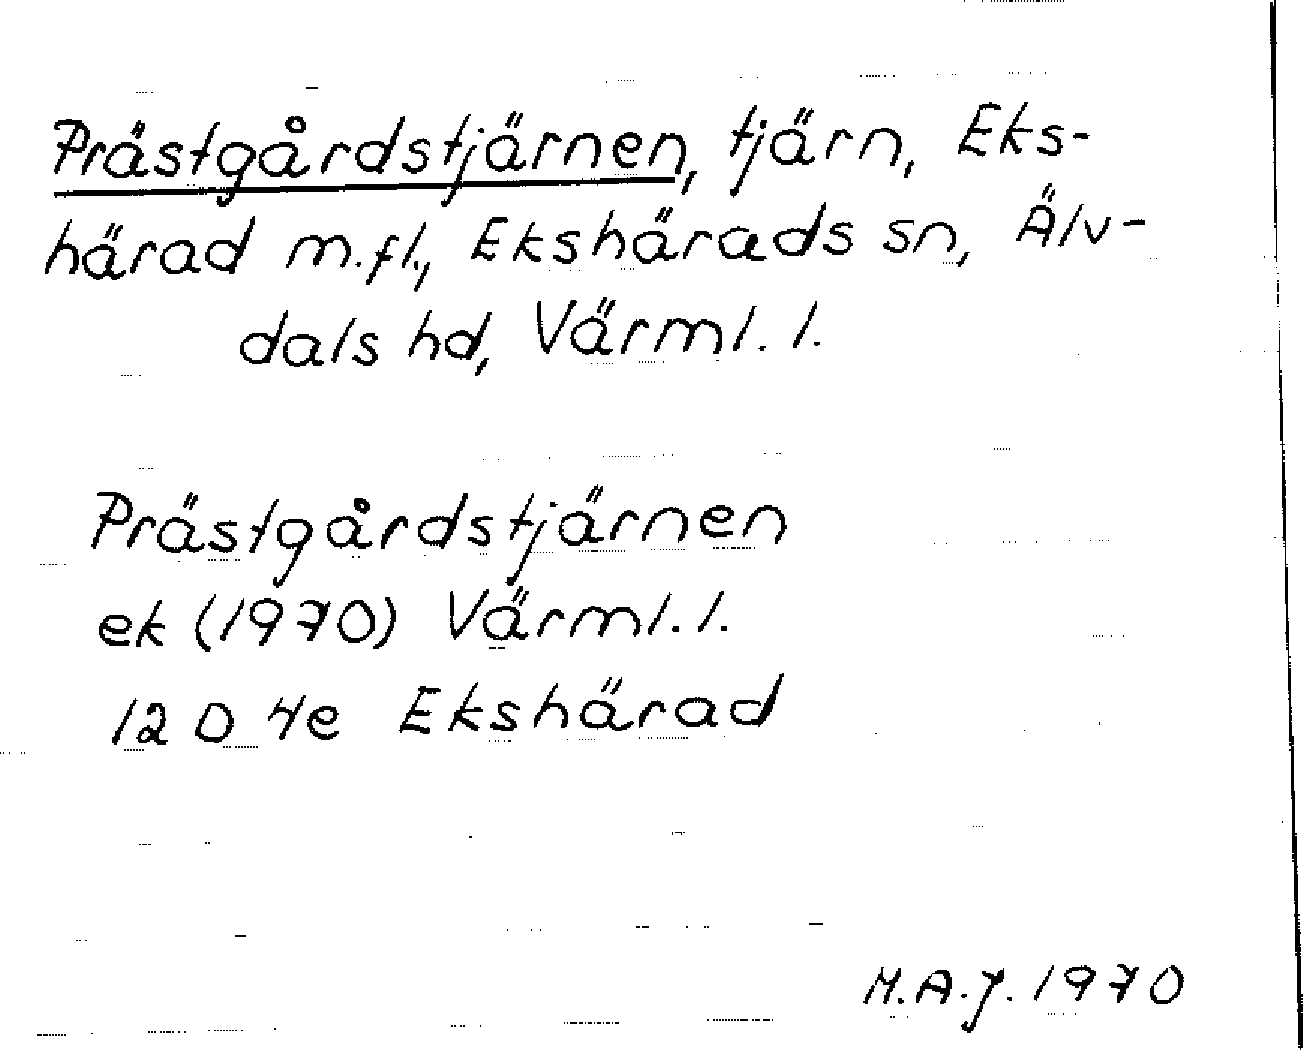 Prästgårdstjärnen, tjärn, Eks-
härad m.fl., Ekshärads sn, Älv-
dals hd, Värml. l.
Prästgårdstjärnen
ek (1970) Värml. l.
12 D 4e Ekshärad
M.A.J. 1970